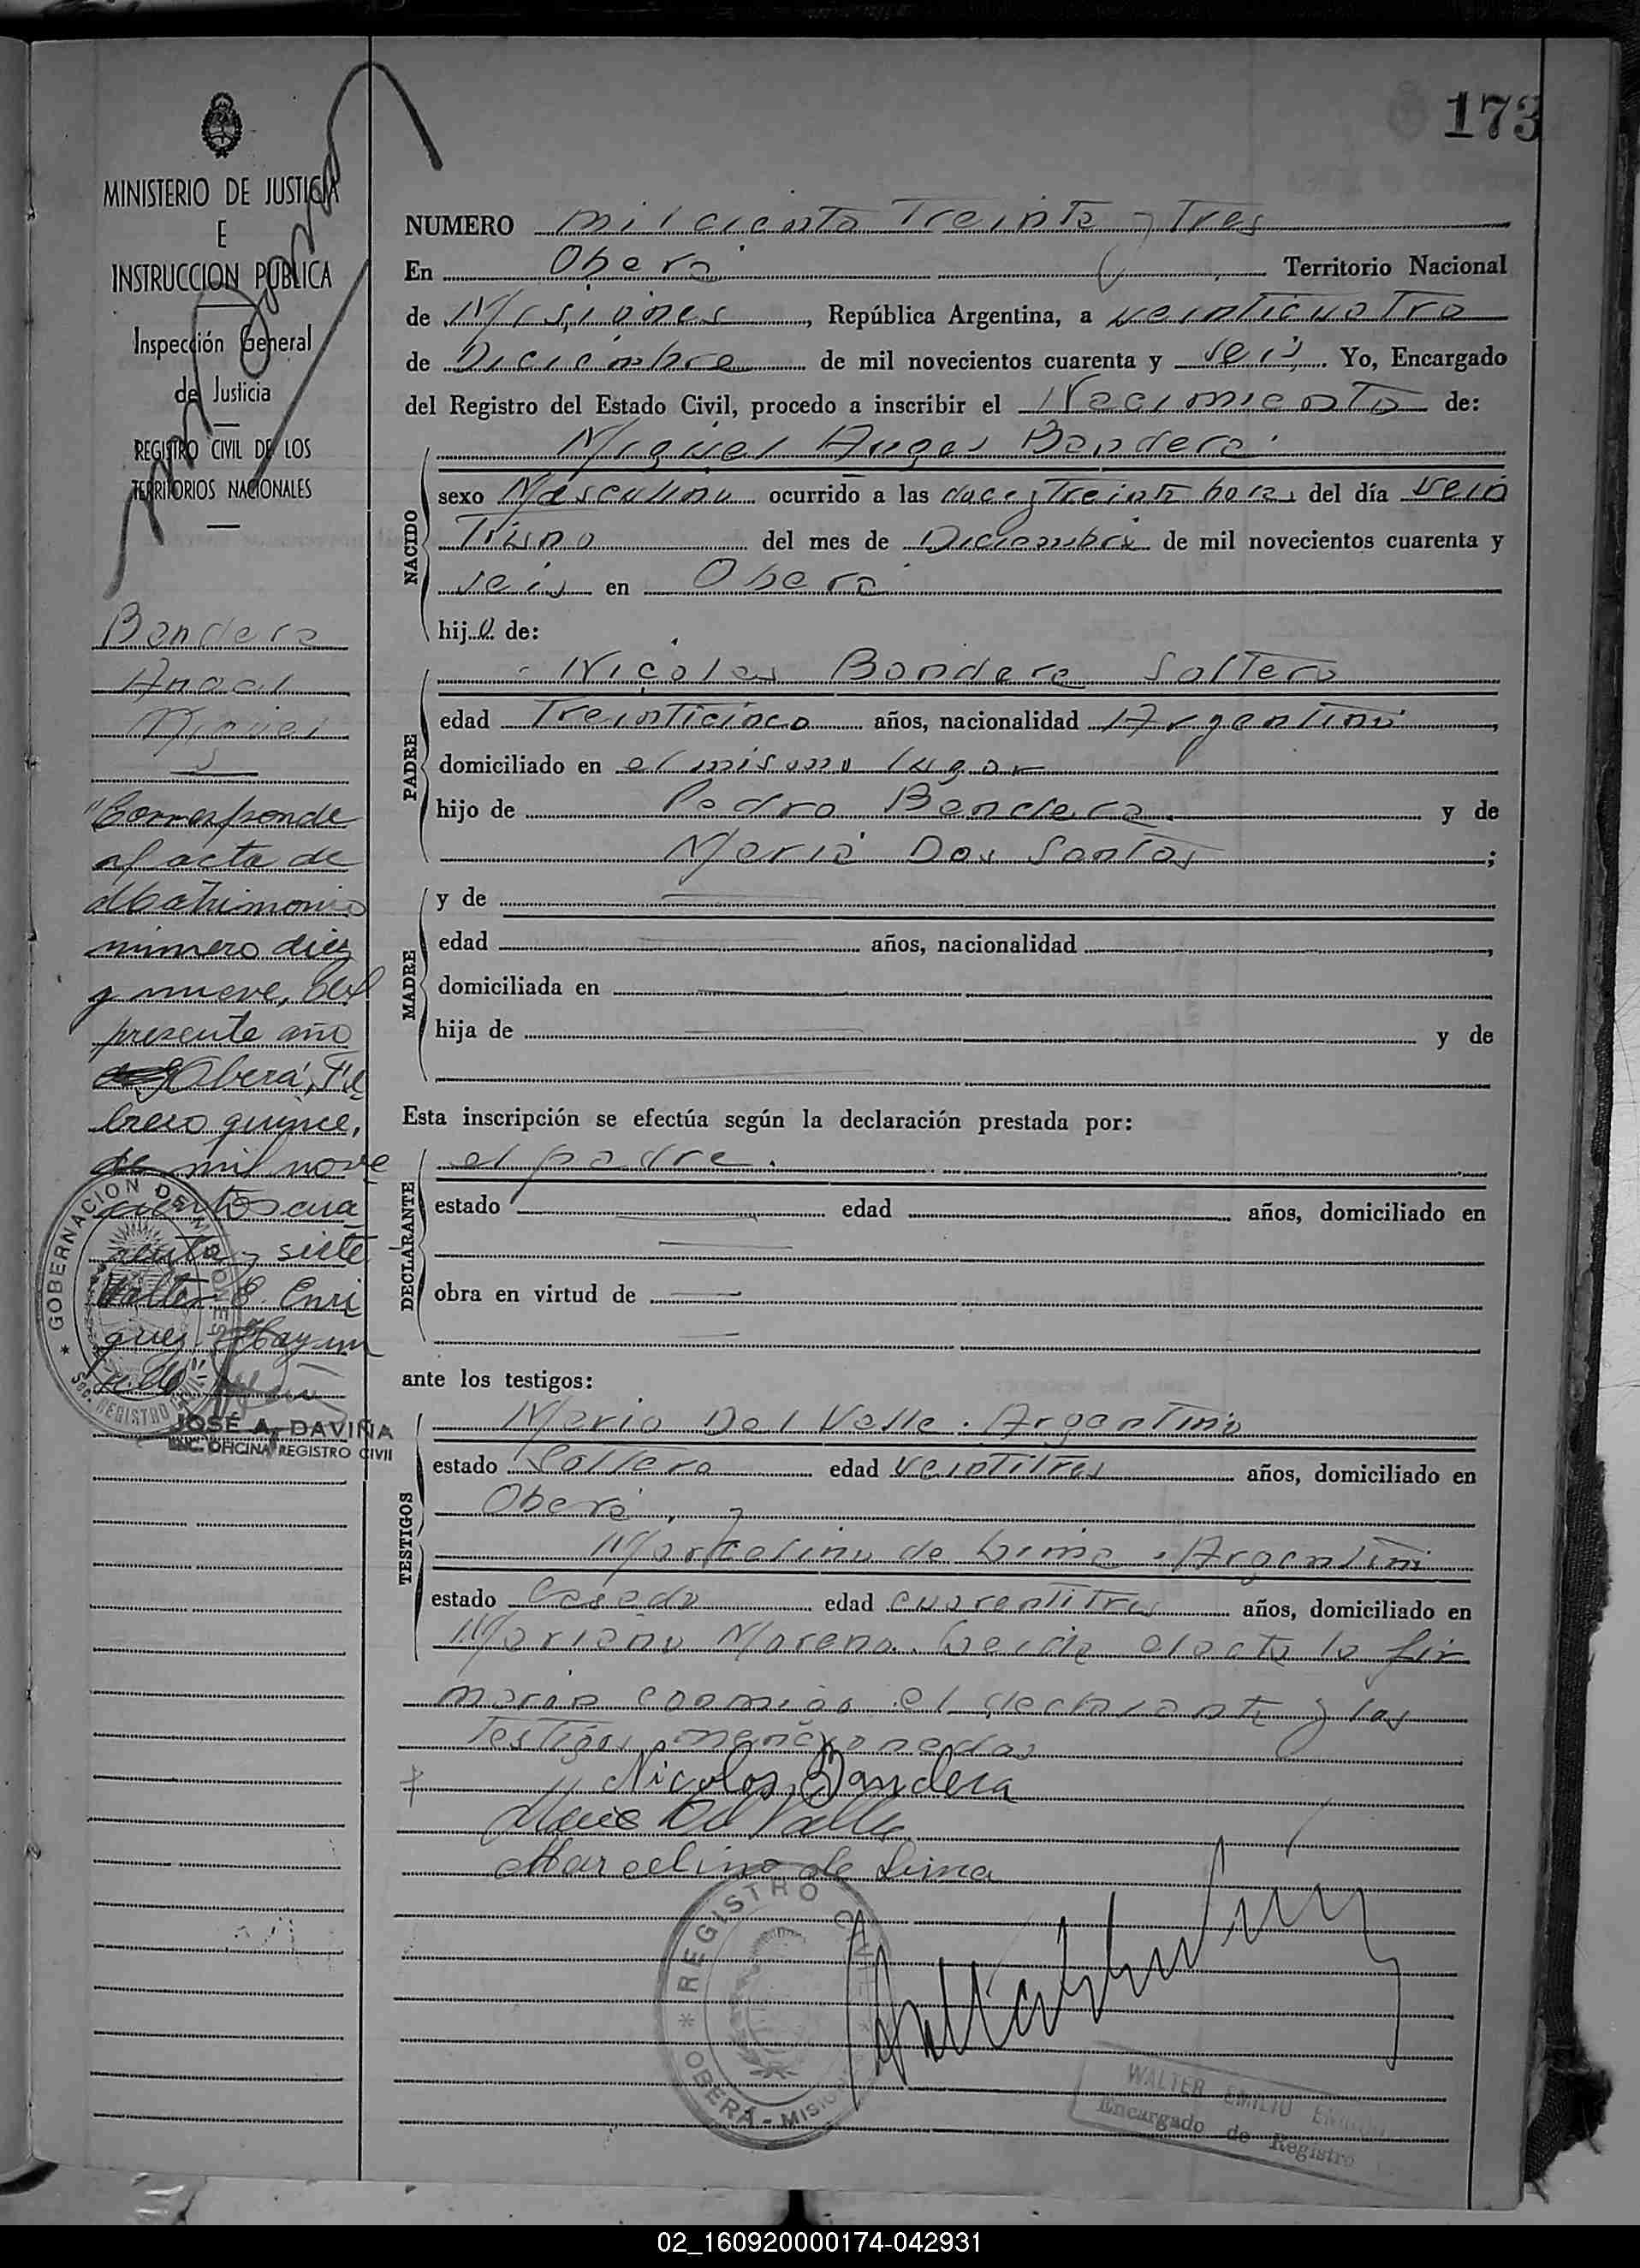 173
MINISTERIO DE JUSTICIA
E
INSTRUCCION PUBLICA
Inspección General
de Justicia
REGISTRO CIVIL DE LOS
TERRITORIOS NACIONALES
Bandera
Angel
Miguel
"Corresponde
al acta de
Matrimonio
número diez
y nueve, del
presente año
Oberá, Fe
brero quince,
de mil nove
cientos cua
renta y siete
Walter E. Enri
quez
GOBERNACION DE MISIONES
REGISTRO
JOSÉ A. DAVIÑA
ENC. OFICINA REGISTRO CIVIL
NUMERO mil ciento Treinta y Tres
En Oberá Territorio Nacional
de Misiones, República Argentina, a veinticuatro
de Diciembre de mil novecientos cuarenta y seis. Yo, Encargado
del Registro del Estado Civil, procedo a inscribir el Nacimiento de:
Miguel Angel Bandera
NACIDO
sexo Masculino ocurrido a las doce y Treinta horas del día vein
Tiuno del mes de Diciembre de mil novecientos cuarenta y
seis en Oberá
hijo de:
Nicolas Bandera Soltero
PADRE
edad Treinticinco años, nacionalidad Argentino
domiciliado en el mismo lugar
hijo de Pedro Bandera y de
Maria Dos Santos ;
MADRE
y de
edad años, nacionalidad ,
domiciliada en
hija de y de
Esta inscripción se efectúa según la declaración prestada por:
el padre.
DECLARANTE
estado edad años, domiciliado en
obra en virtud de
ante los testigos:
Mario Del Valle. Argentino
TESTIGOS
estado Soltero edad veintitres años, domiciliado en
Oberá, y
Marcelino de Lima, Argentino
estado Casado edad cuarentitres años, domiciliado en
Mariano Moreno. Leida el acta la fir
maron conmigo el declarante y los
Testigos mencionados
Nicolas Bandera
Mario Del Valle
Marcelino de Lima
REGISTRO CIVIL
OBERÁ - MISIONES
WALTER EMILIO
Encargado de Registro
02_160920000174-042931